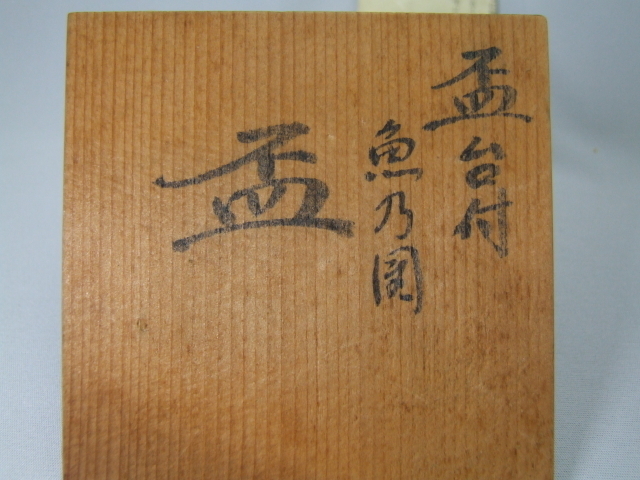 盃台付
魚乃図
盃